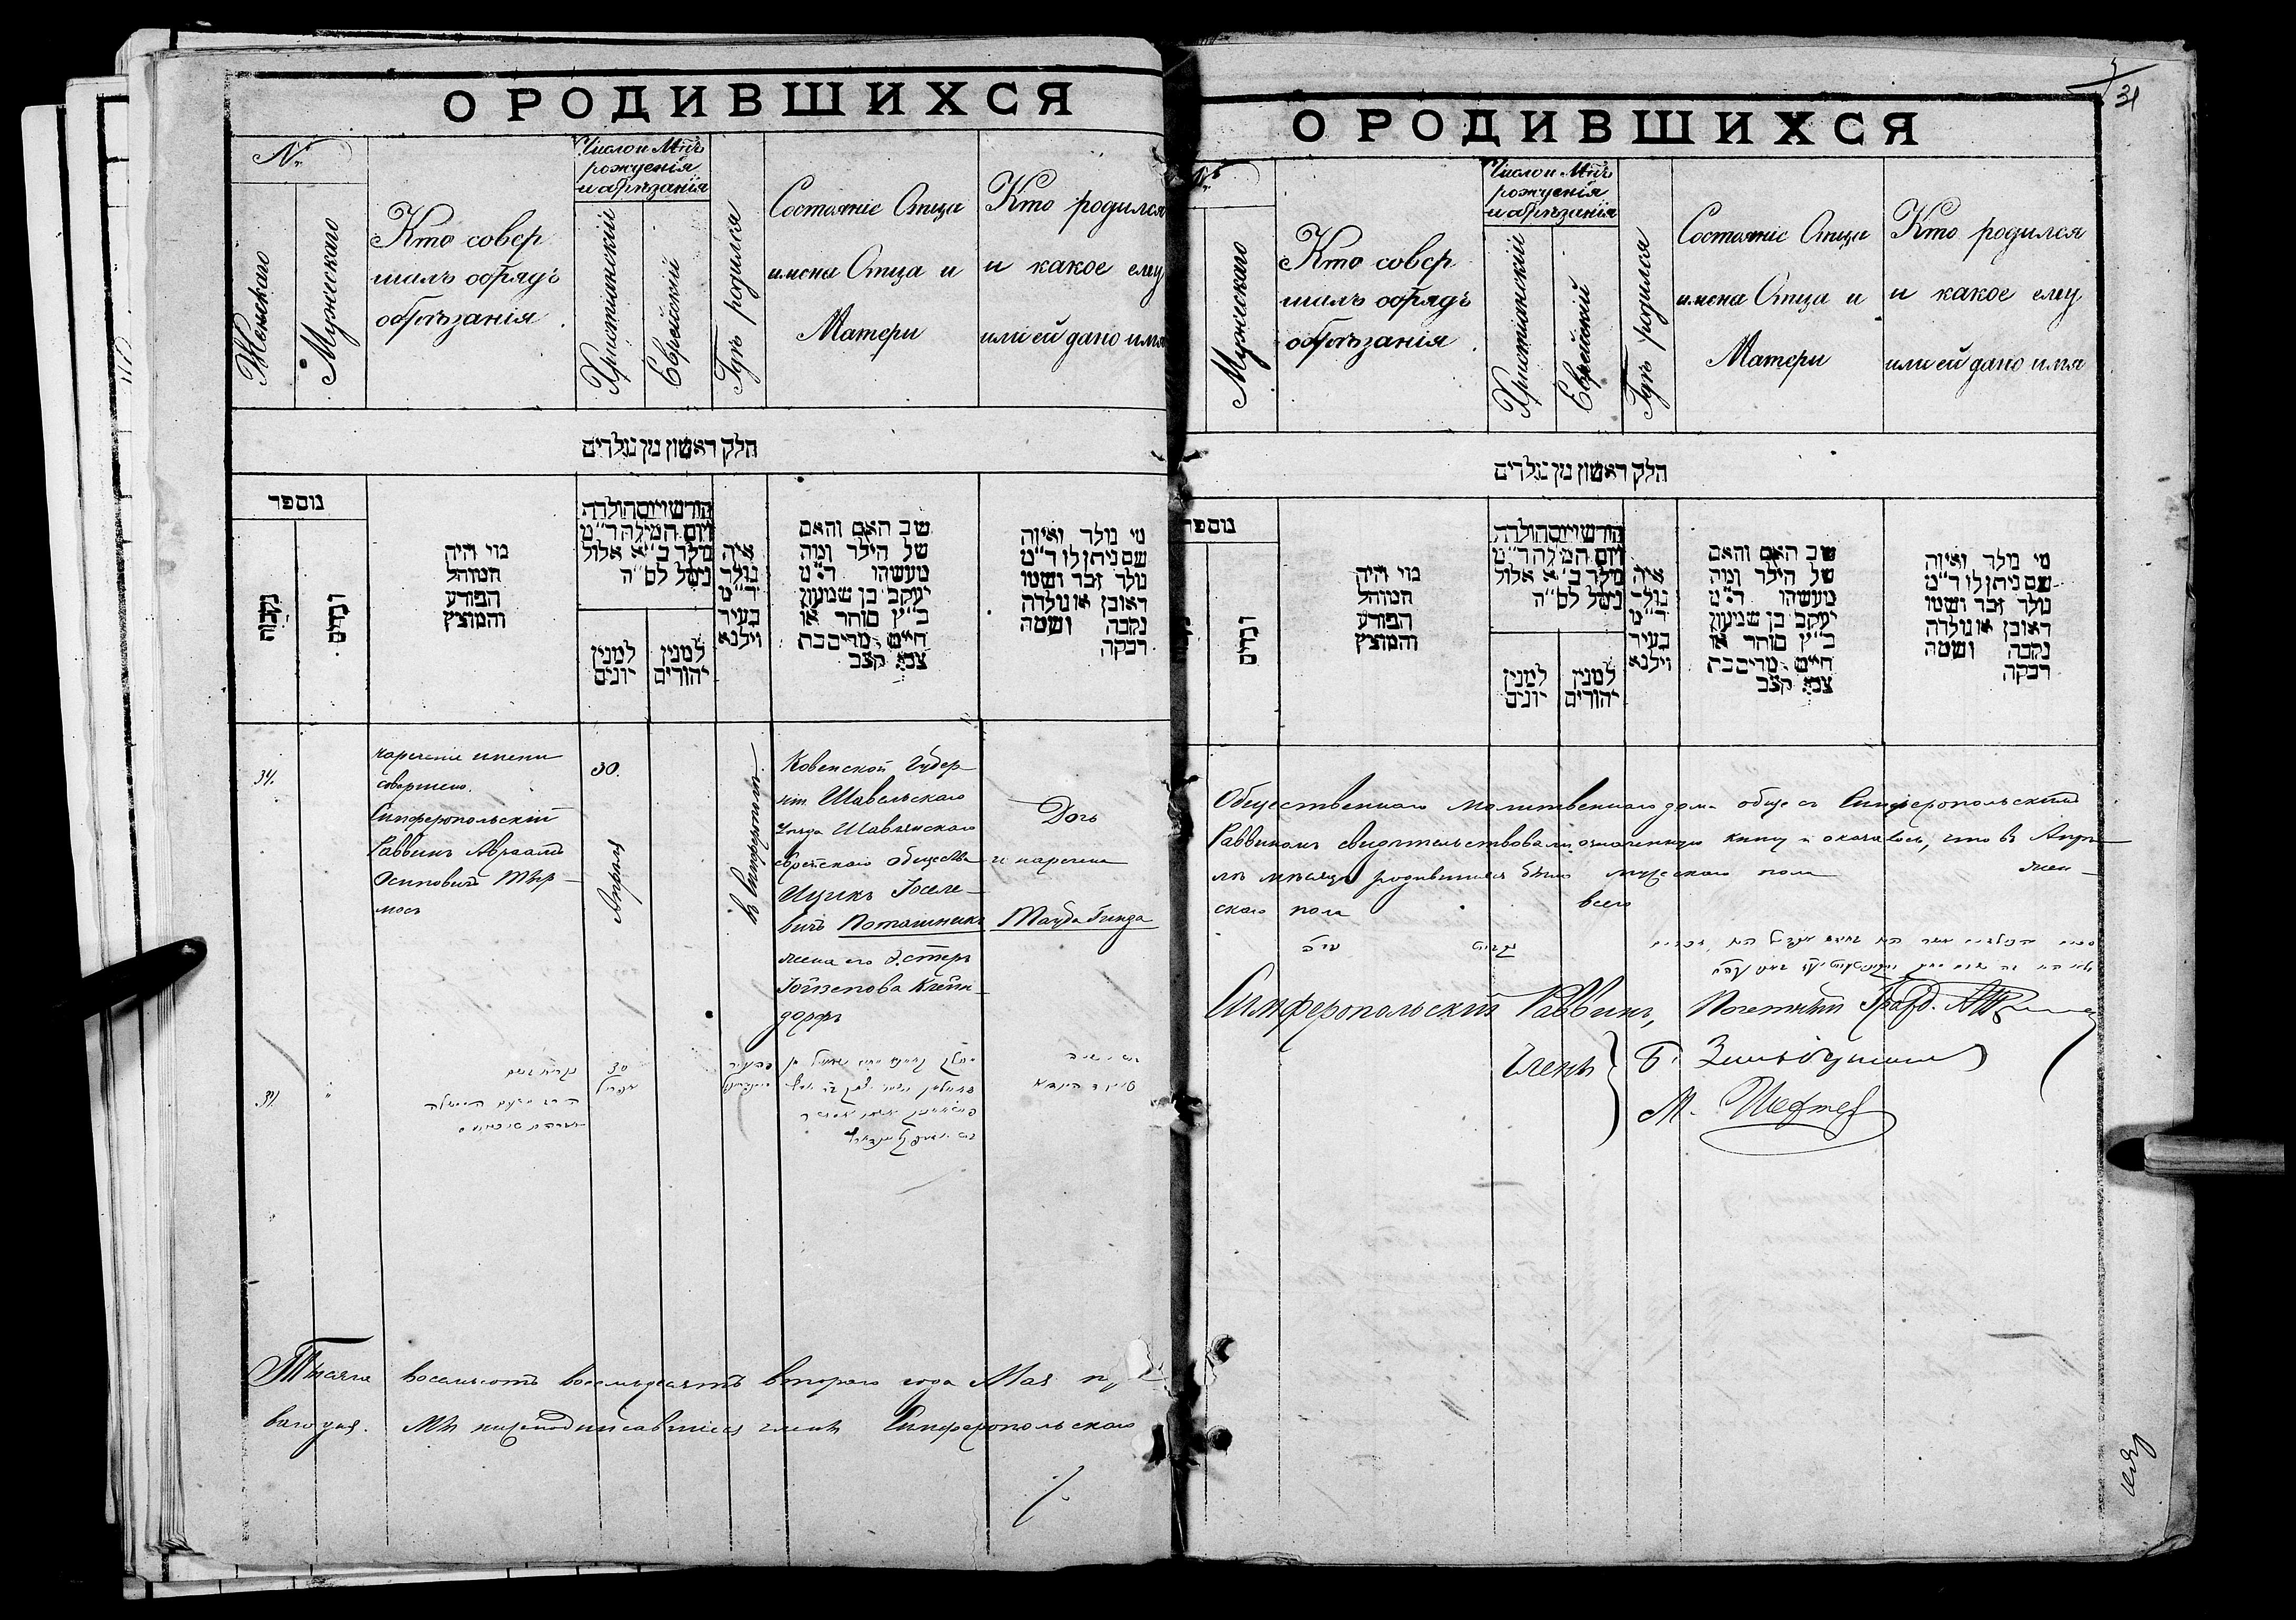 О РОДИВШИХСЯ
№
Женскаго
Мужескаго
Кто совер
шалъ обрядъ
обрѣзанія
Число и Мцъ
рожденія
и обрѣзанія
Христіанскій
Еврейскій
Гдѣ родился
Состояніе Отца
имена Отца и
Матери
Кто родился
и какое ему
или ей дано имя
חלק ראשון מן נולדים
מוספר
נקבות
זכרים
מי היה
המוהל
הפורע
והמוצץ
חודש ויום הולדה
ויום המילה ד״מ
נולד ב״א אלול
נימל לס״ה
למנין
יונים
למנין
יהודים
איה
נולד
ד״מ
בעיר
וילנא
שם האב והאם
של הילד ומה
מעשהו ד״מ
יעקב בן שמעון
כ״ץ סוחר או
חייט מרים בת
צבי קצב
מי נולד ואיזה
שם ניתן לו ד״מ
נולד זכר ושמו
ראובן או נולדה
נקבה ושמה
רבקה
34.
нареченіе имени
совершено.
Симферопольскій
Раввинъ Авраамъ
Осиповичъ
30.
Апрѣля
въ Симферополѣ
Ковенской Губер-
ніи Шавельскаго
Уѣзда Шавлянскаго
еврейскаго общества
Ицикъ Іоселе-
вичъ Поташникъ
жена его Эстеръ
Іойзепова Клейн-
дорфъ
Дочь
и наречена
Тауба Гинда
34.
30
אפריל
Тысяча восемьсотъ восемьдесятъ втораго года Мая пер
ваго дня. Мы нижеподписавшіеся члены Симферопольскаго
О РОДИВШИХСЯ
31
№
Мужескаго
Кто совер
шалъ обрядъ
обрѣзанія
Число и Мцъ
рожденія
и обрѣзанія
Христіанскій
Еврейскій
Гдѣ родился
Состояніе Отца
имена Отца и
Матери
Кто родился
и какое ему
или ей дано имя
חלק ראשון מן נולדים
מוספר
זכרים
מי היה
המוהל
הפורע
והמוצץ
חודש ויום הולדה
ויום המילה ד״מ
נולד ב״א אלול
נימל לס״ה
למנין
יונים
למנין
יהודים
איה
נולד
ד״מ
בעיר
וילנא
שם האב והאם
של הילד ומה
מעשהו ד״מ
יעקב בן שמעון
כ״ץ סוחר או
חייט מרים בת
צבי קצב
מי נולד ואיזה
שם ניתן לו ד״מ
נולד זכר ושמו
ראובן או נולדה
נקבה ושמה
רבקה
Общественнаго молитвеннаго дома обще съ Симферопольскимъ
Раввиномъ свидѣтельствовали означенную книгу и оказалось, что въ Апрѣ-
лѣ мѣсяцѣ родившихся было мужескаго пола жен-
скаго пола всего
Симферопольскій Раввинъ, Почетный Гражд.
Члены Б. Зильберманъ
М. Шефтель